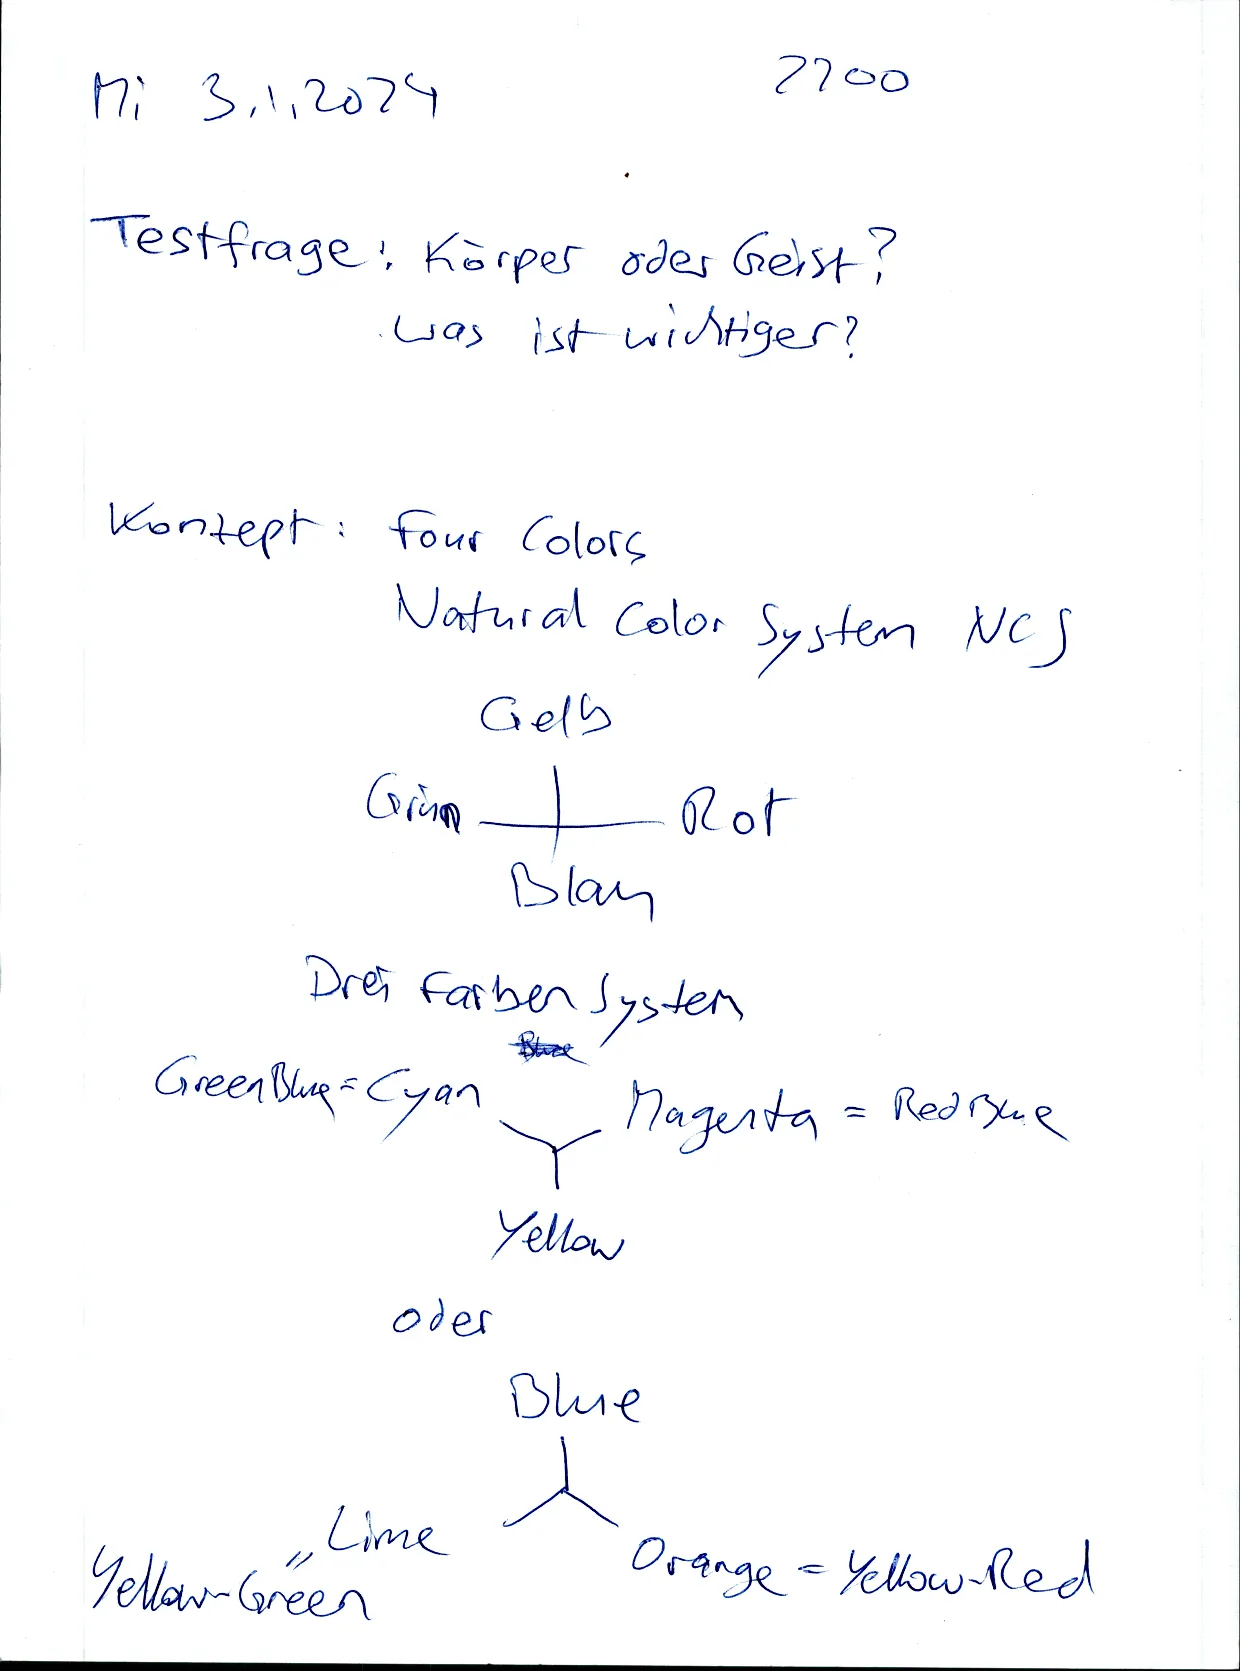 Mi 3.1.2024 2200
Testfrage: Körper oder Geist?
Was ist wichtiger?
Konzept: Four Colors
Natural Color System NCS
Gelb
Grün Rot
Blau
Drei Farben System
GreenBlue = Cyan Magenta = RedBlue
Yellow
oder
Blue
Lime
Yellow-Green = Orange = Yellow-Red